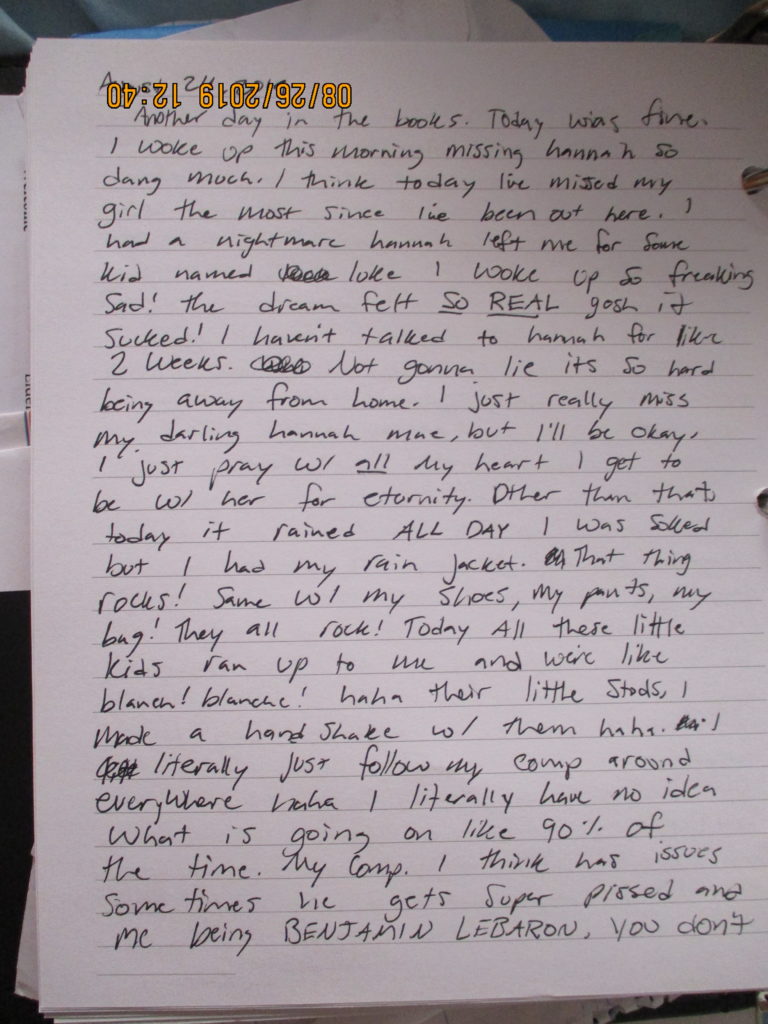 August 24
08/26/2019 12:40
Another day in the books. Today was fine.
I woke up this morning missing hannah so
dang much. I think today I've missed my
girl the most since I've been out here. I
had a nightmare hannah left me for some
kid named luke I woke up so freaking
Sad! the dream felt SO REAL gosh it
Sucked! I haven't talked to hannah for like
2 weeks. Not gonna lie its so hard
being away from home. I just really miss
my darling hannah mae, but I'll be okay.
I just pray w/ all my heart I get to
be w/ her for eturnity. Other than that
today it rained ALL DAY I was Soked
but I had my rain jacket. That thing
rocks! Same w/ my shoes, my pants, my
bag! They all rock! Today All these little
kids ran up to me and were like
blanch! blanche! haha their little Stods, I
made a hand shake w/ them haha. I
literally just follow my comp around
everywhere haha I literally have no idea
what is going on like 90% of
the time. My Comp. I think has issues
Sometimes he gets Super pissed and
me being BENJAMIN LEBARON, you don't